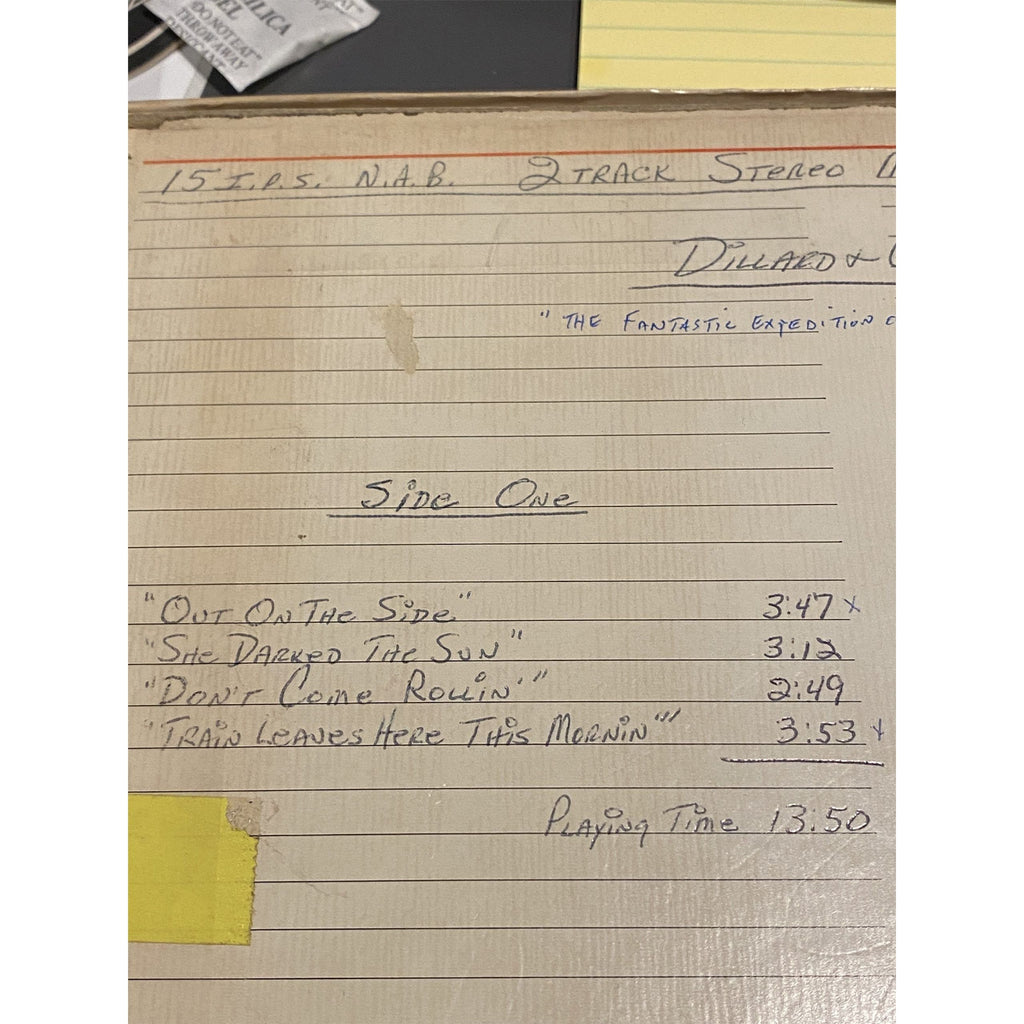 SILICA
GEL
"DO NOT EAT"
THROW AWAY
15 I.P.S. N.A.B. 2 TRACK STEREO
DILLARD &
"THE FANTASTIC EXPEDITION
SIDE ONE
"OUT ON THE SIDE" 3:47 x
"SHE DARKED THE SUN" 3:12
"DON'T COME ROLLIN'" 2:49
"TRAIN LEAVES HERE THIS MORNIN'" 3:53 x
PLAYING TIME 13:50